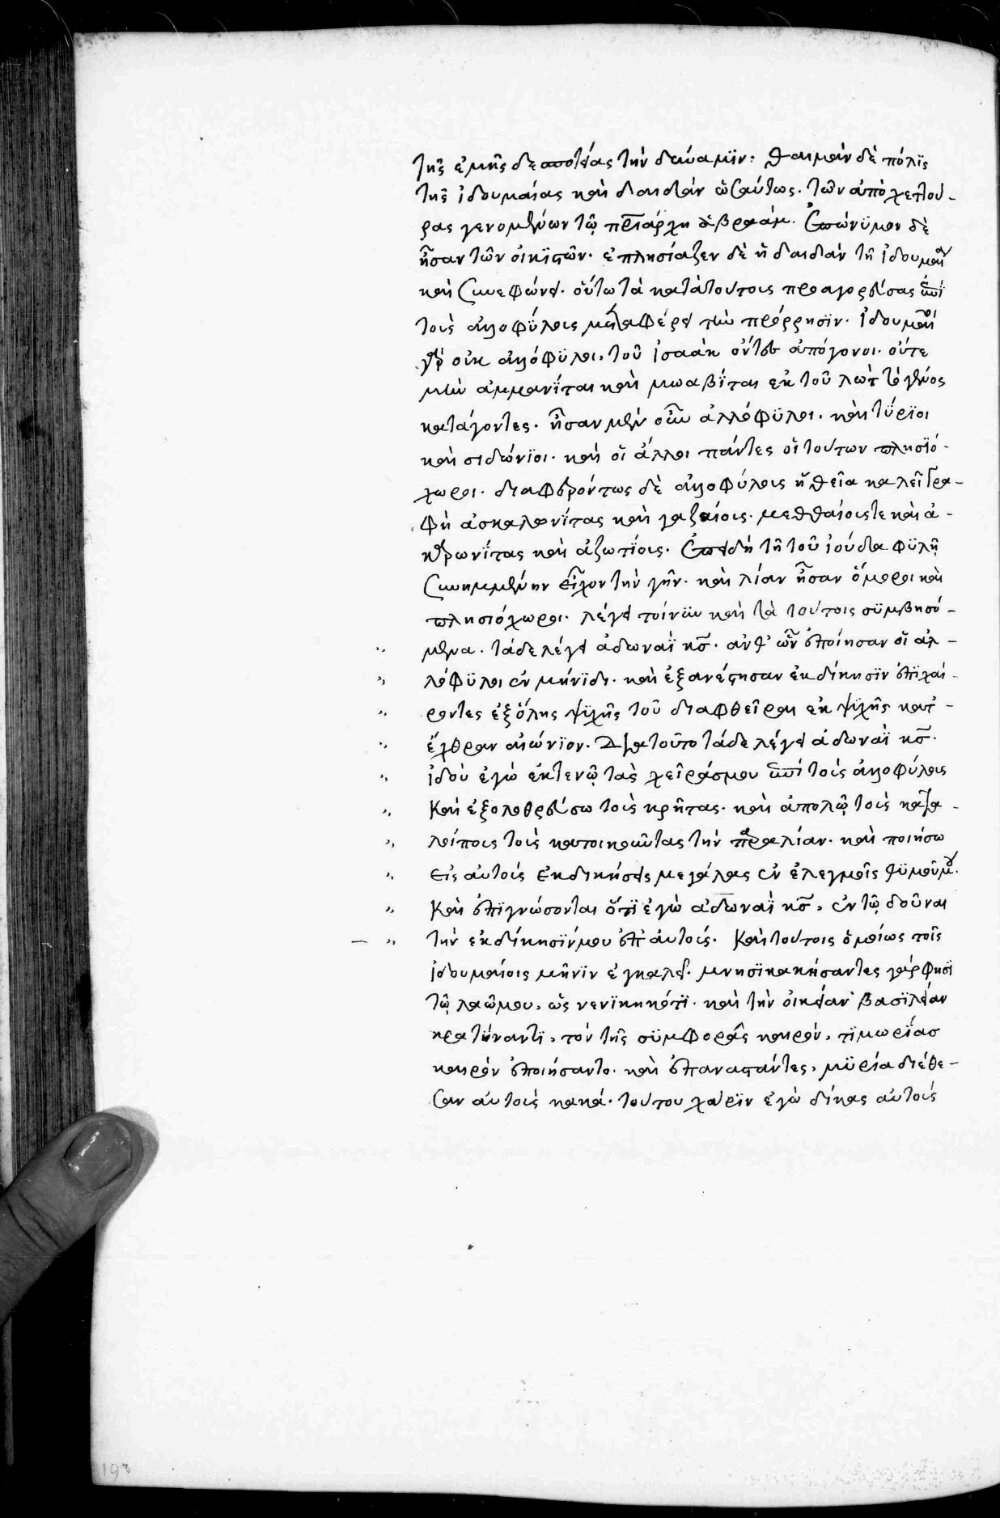 τῆς ἐμῆς δεσποτείας τὴν δύναμϊν· θαιμὰν δὲ πόλϊς
τῆς ἰδουμαίας καὶ δαιδὰν ὡσαύτως· τῶν ἀπὸ χεττού-
ρας γενομένων τῷ πατριάρχη ἁβραάμ. Ἐπώνϋμον δὲ
ἦσαν τῶν οἰκϊστῶν· ἐπλησίαζεν δὲ ἡ δαιδὰν τῆ ἰδουμαία
καὶ συνεφώνει· οὕτω τὰ κατὰ τούτοις προαγορεύσας ἐπὶ
τοὶς ἀλλοφϋλοις μεταφέρει τὴν πρόρρησϊν· ἰδουμαῖοι
γὰρ οὐκ ἀλλόφϋλοι, τοῦ ἰσαὰκ ὄντες ἀπόγονοι· οὔτε
μὴν ἀμμανῖται καὶ μωαβῖται ἐκ τοῦ λὼτ τὸ γένος
κατάγοντες· ἦσαν μὲν οὖν ἀλλόφϋλοι· καὶ τΰρϊοι
καὶ σιδώνϊοι· καὶ οἱ ἄλλοι πάντες οἱ τούτων πλησϊό-
χωροι· διαφερόντως δὲ ἀλλοφύλοις ἡ θεῖα καλεῖ γρα-
φὴ ἀσκαλονίτας καὶ γαζαίοις· μεθθαίοις τε καὶ ἀ-
κκρωνίτας καὶ ἀζωτϊοις· Ἐπειδὴ τῆ τοῦ ἰούδα φϋλῆ
συνημμένην εἶχον τὴν γῆν· καὶ λίαν ἦσαν ὅμοροι καὶ
πλησιόχωροι· λέγει τοίνϋν καὶ τὰ τούτοις σϋμβησό-
μενα· τάδε λέγει ἀδωναῒ κς· ἀνθ' ὧν ἐποίησαν οἱ ἀλ-
λόφϋλοι ἐν μήνϊδι· καὶ ἐξανέστησαν ἐκδίκησϊν ἐπϊχαί-
ροντες ἐξ ὅλης ψϋχῆς τοῦ διαφθεῖραι ἐκ ψϋχῆς κατ'
ἔχθραν αἰώνϊον· Διατοῦτο τάδε λέγει ἀδωναῒ κς·
ἰδοὺ ἐγὼ ἐκτενῶ τὰς χεῖράς μου ἐπὶ τοὶς ἀλλοφύλοις
Καὶ ἐξολοθρεύσω τοὶς κρῆτας· καὶ ἀπολῶ τοὶς κατα-
λοίποις τοὶς κατοικοῦντας τὴν παραλίαν· καὶ ποιήσω
Εἰς αὐτοὶς ἐκδικήσεις μεγάλας ἐν ἐλεγμοῖς θϋμοῦ μου·
Καὶ ἐπϊγνώσονται ὅτϊ ἐγὼ ἀδωναῒ κς, ἐν τῷ δοῦναι
τὴν ἐκδίκησϊν μου ἐπ' αὐτοίς. Καὶ τούτοις ὁμοίως τοῖς
ἰδουμαίοις μῆνϊν ἐγκαλεῖ· μνησϊκακήσαντες γάρ φησϊ
τῷ λαῷ μου, ὡς νενϊκηκότϊ· καὶ τὴν οἰκείαν βασϊλείαν
κρατύναντϊ, τὸν τῆς σϋμφορᾶς καιρὸν, τϊμωρίας
καιρὸν ἐποιήσαντο· καὶ ἐπαναστάντες, μϋρία διέθε-
σαν αὐτοὶς κακά· τούτου χάρϊν ἐγὼ δίκας αὐτοὶς